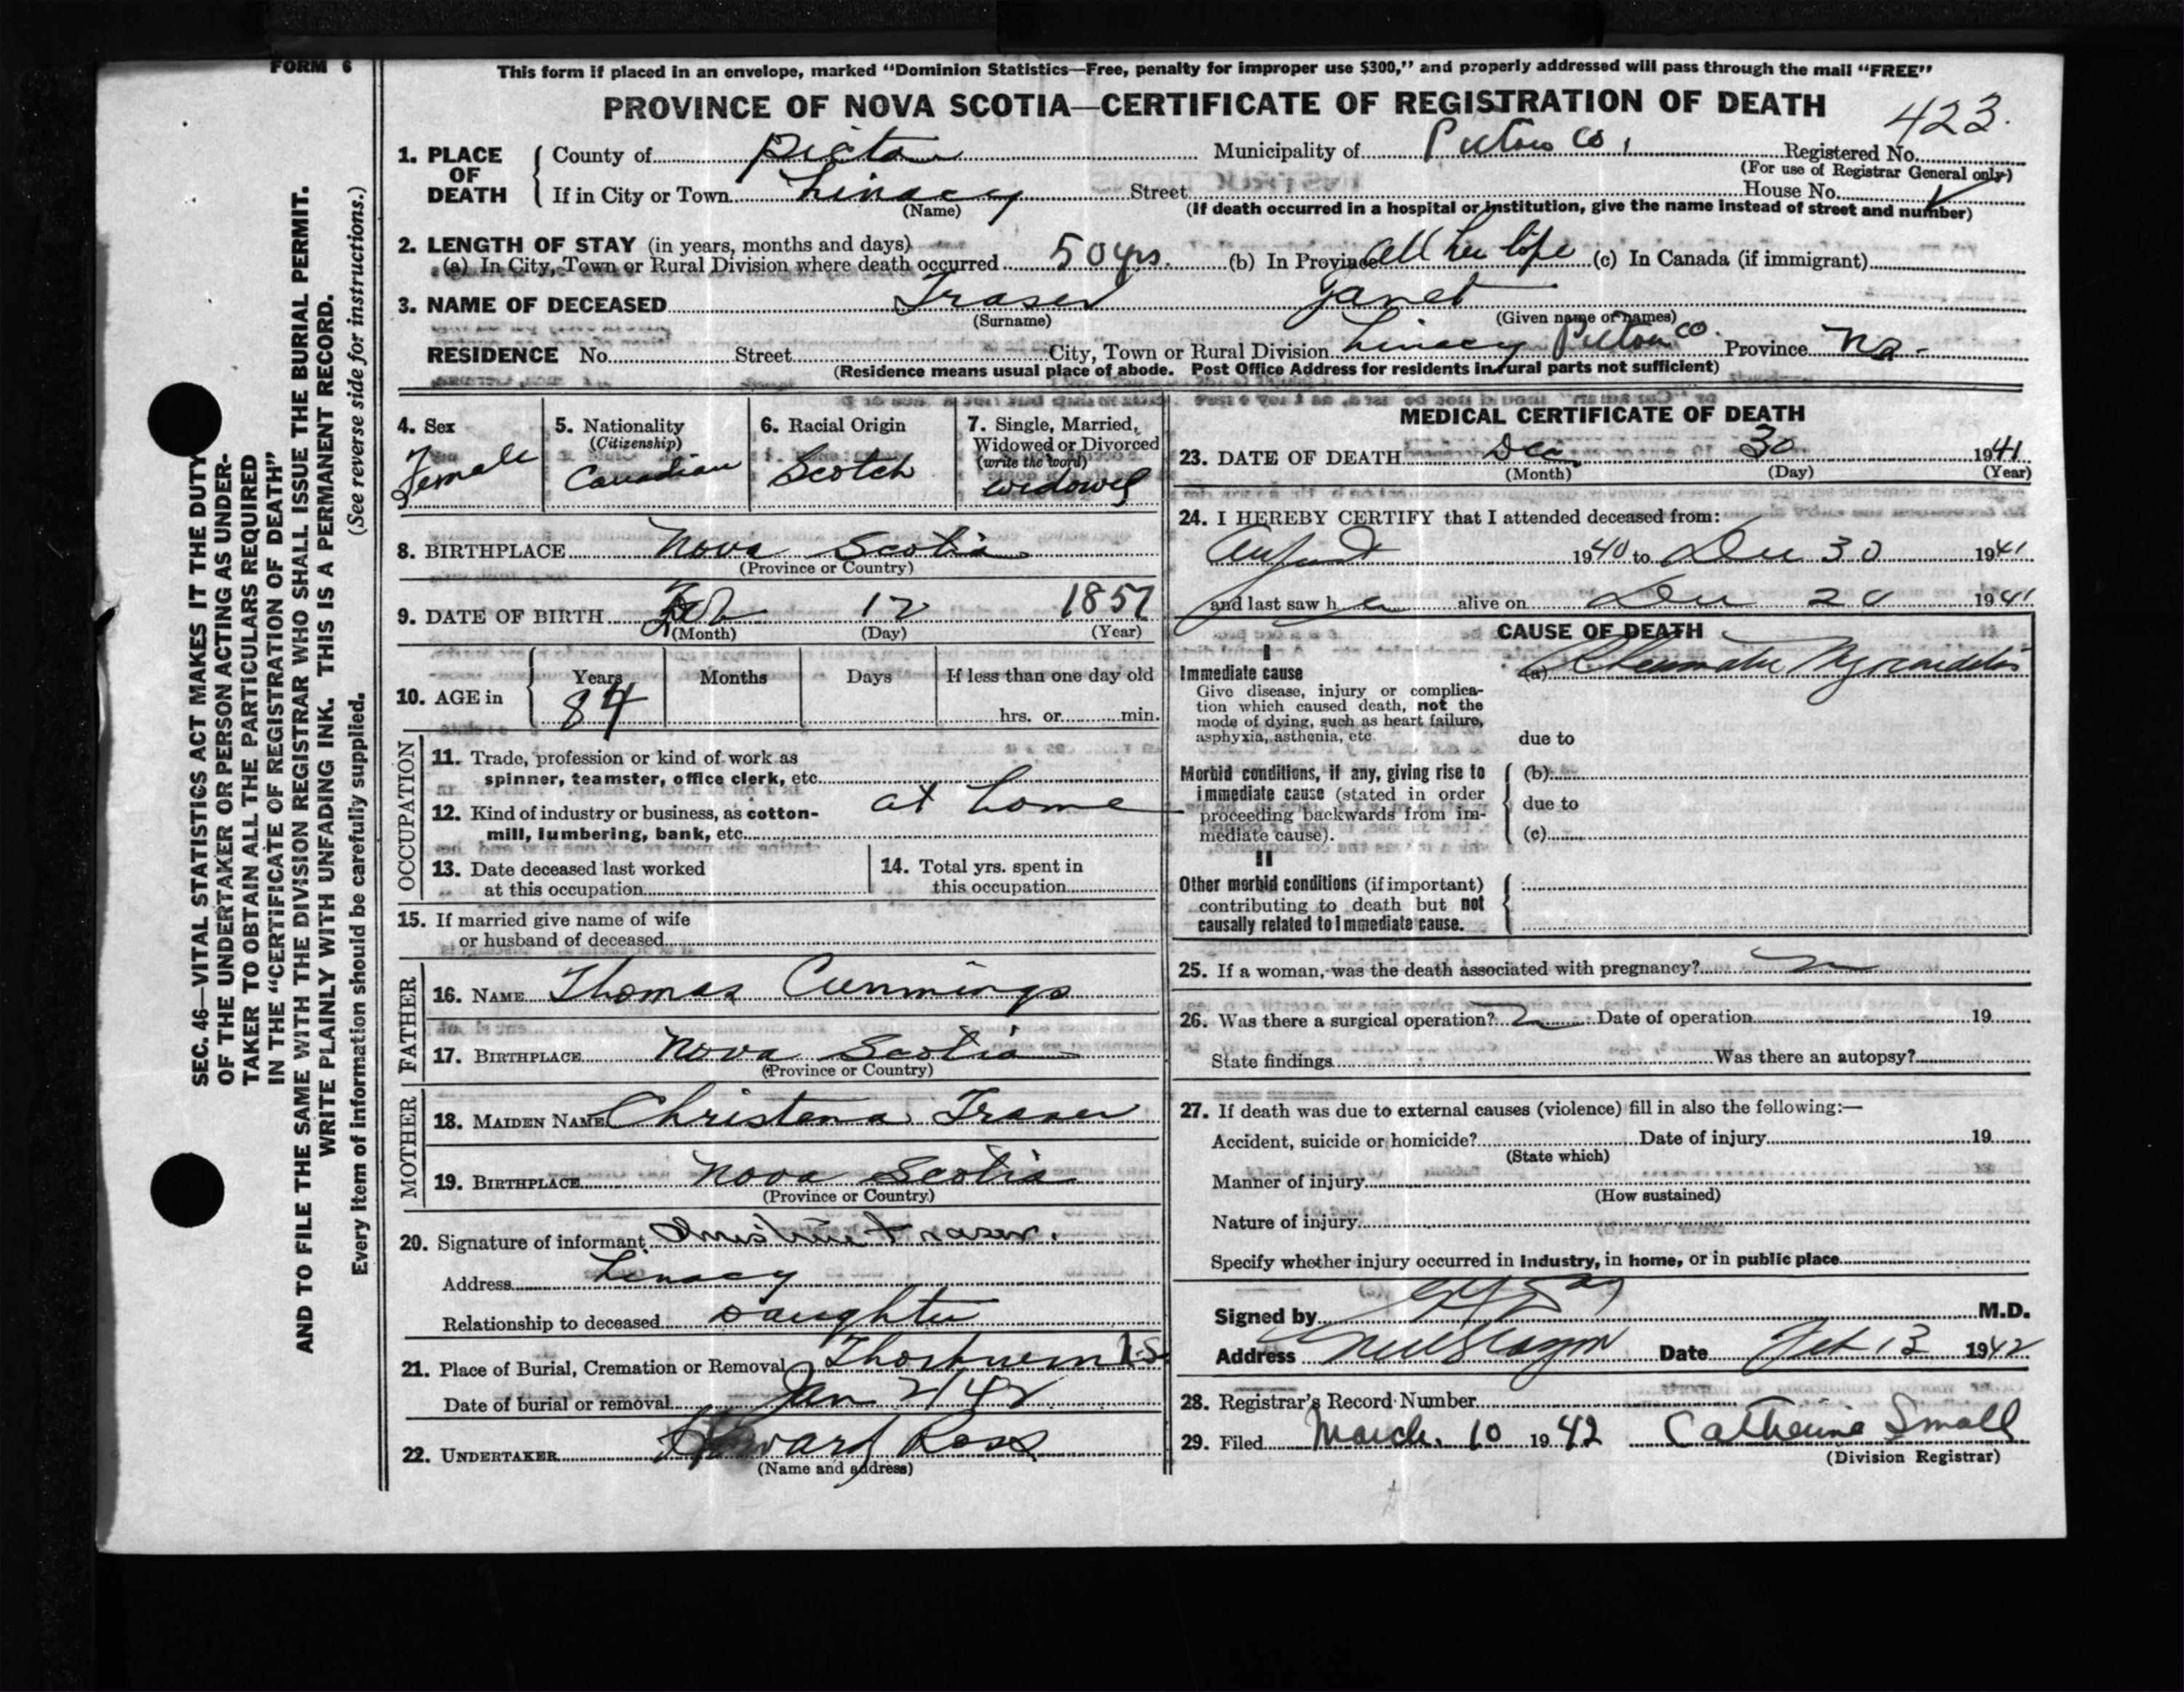 FORM 6
This form if placed in an envelope, marked "Dominion Statistics—Free, penalty for improper use $300," and properly addressed will pass through the mail "FREE"
PROVINCE OF NOVA SCOTIA—CERTIFICATE OF REGISTRATION OF DEATH
423.
1. PLACE OF DEATH
County of Pictou Municipality of Pictou Co, Registered No.
(For use of Registrar General only)
If in City or Town Linacy Street House No.
(Name) (If death occurred in a hospital or institution, give the name instead of street and number)
2. LENGTH OF STAY (in years, months and days)
(a) In City, Town or Rural Division where death occurred 50 yrs. (b) In Province All her life (c) In Canada (if immigrant)
3. NAME OF DECEASED Fraser Janet
(Surname) (Given name or names)
RESIDENCE No. Street City, Town or Rural Division Linacy Pictou Co. Province N.S.
(Residence means usual place of abode. Post Office Address for residents in rural parts not sufficient)
4. Sex Female
5. Nationality (Citizenship) Canadian
6. Racial Origin Scotch
7. Single, Married, Widowed or Divorced (write the word) widowed
8. BIRTHPLACE Nova Scotia
(Province or Country)
9. DATE OF BIRTH Feb 12 1857
(Month) (Day) (Year)
10. AGE in Years 84 Months Days If less than one day old
hrs. or min.
OCCUPATION
11. Trade, profession or kind of work as
spinner, teamster, office clerk, etc.
at home
12. Kind of industry or business, as cotton-
mill, lumbering, bank, etc.
13. Date deceased last worked
at this occupation
14. Total yrs. spent in
this occupation
15. If married give name of wife
or husband of deceased
FATHER
16. NAME Thomas Cummings
17. BIRTHPLACE Nova Scotia
(Province or Country)
MOTHER
18. MAIDEN NAME Christena Fraser
19. BIRTHPLACE Nova Scotia
(Province or Country)
20. Signature of informant Christine Fraser.
Address Linacy
Relationship to deceased Daughter
21. Place of Burial, Cremation or Removal Thorburn N.S.
Date of burial or removal Jan 2/42
22. UNDERTAKER Howard Ross
(Name and address)
MEDICAL CERTIFICATE OF DEATH
23. DATE OF DEATH Dec. 30 1941
(Month) (Day) (Year)
24. I HEREBY CERTIFY that I attended deceased from:
August 1940 to Dec 30 1941
and last saw her alive on Dec 20 1941
CAUSE OF DEATH
I
Immediate cause
Give disease, injury or complica-
tion which caused death, not the
mode of dying, such as heart failure,
asphyxia, asthenia, etc.
(a) Rheumatic Myocarditis
due to
Morbid conditions, if any, giving rise to
immediate cause (stated in order
proceeding backwards from im-
mediate cause).
(b)
due to
(c)
II
Other morbid conditions (if important)
contributing to death but not
causally related to immediate cause.
25. If a woman, was the death associated with pregnancy?
26. Was there a surgical operation? Date of operation 19
State findings Was there an autopsy?
27. If death was due to external causes (violence) fill in also the following:—
Accident, suicide or homicide? Date of injury 19
(State which)
Manner of injury
(How sustained)
Nature of injury
Specify whether injury occurred in industry, in home, or in public place
Signed by M.D.
Address New Glasgow Date Feb 13 1942
28. Registrar's Record Number
29. Filed March 10 1942 Catherine Small
(Division Registrar)
SEC. 46—VITAL STATISTICS ACT MAKES IT THE DUTY
OF THE UNDERTAKER OR PERSON ACTING AS UNDER-
TAKER TO OBTAIN ALL THE PARTICULARS REQUIRED
IN THE "CERTIFICATE OF REGISTRATION OF DEATH"
AND TO FILE THE SAME WITH THE DIVISION REGISTRAR WHO SHALL ISSUE THE BURIAL PERMIT.
WRITE PLAINLY WITH UNFADING INK. THIS IS A PERMANENT RECORD.
Every item of information should be carefully supplied. (See reverse side for instructions.)